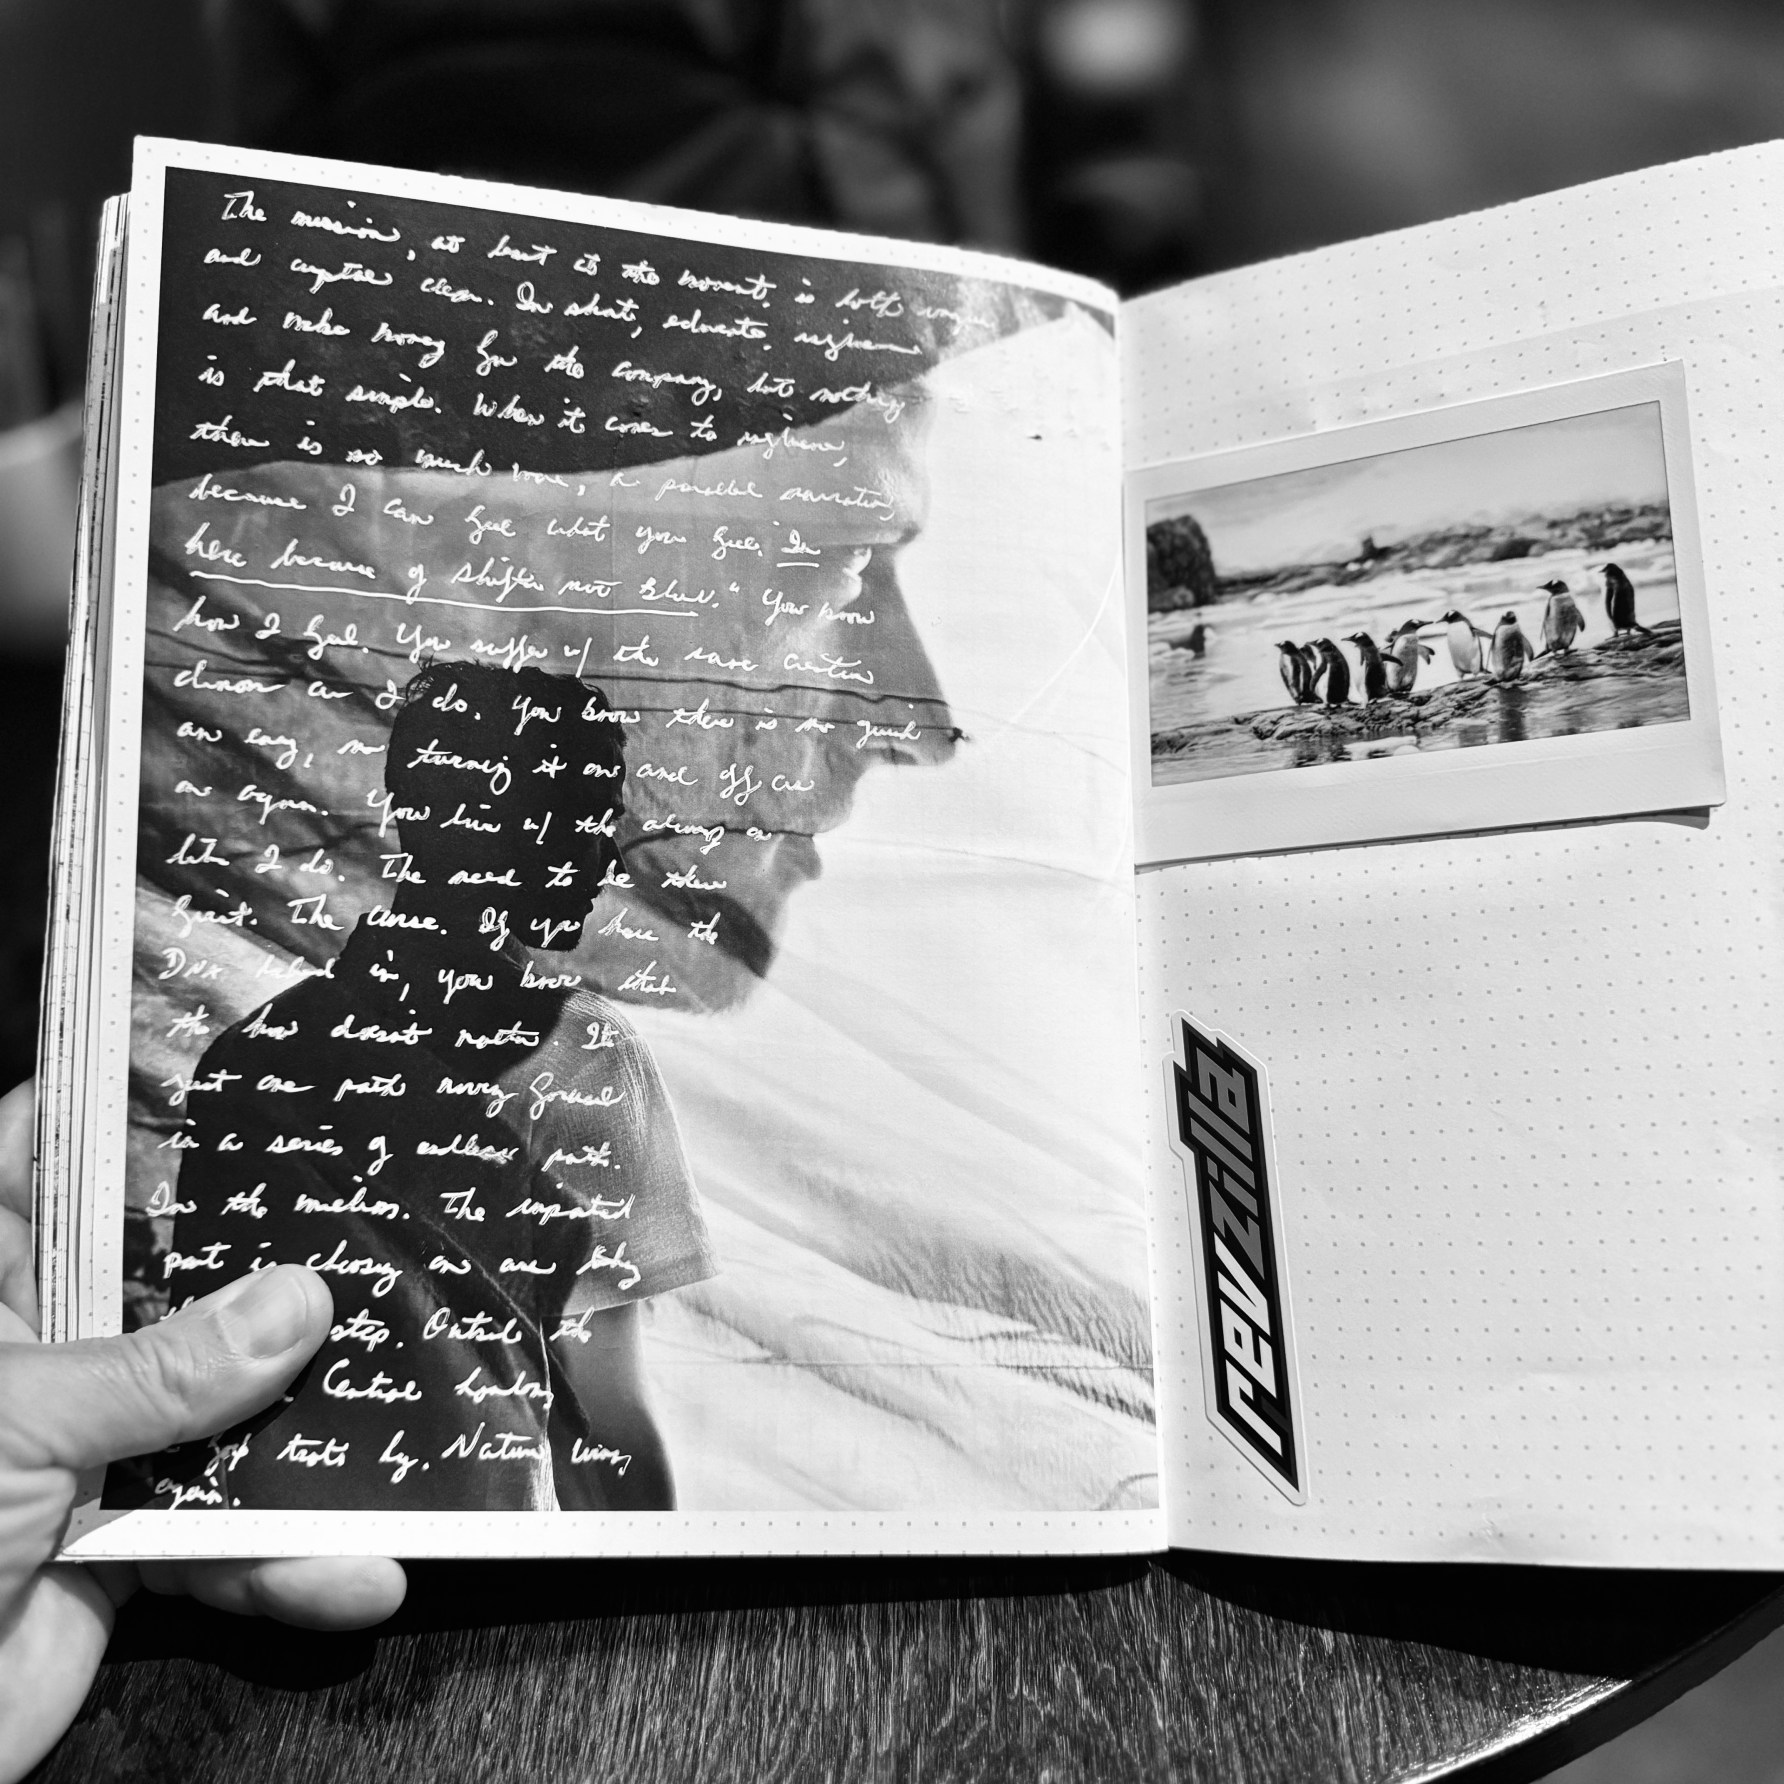 The mission, at least at the moment, is both vague
and crystal clear. In short, educate,
and make money for the company, but nothing
is that simple. When it comes to
there is so much more, a parallel narrative,
because I can feel what you feel. "I'm
here because of Shifter not Blurb." You know
how I feel. You suffer w/ the same creative
demon as I do. You know there is no quick
an easy, no turning it on and off an
on again. You live w/ the always on
like I do. The need to be there
first. The curse. If you have the
DNA baked in, you know that
the how doesn't matter. It
just one path moving forward
in a series of endless paths.
In the millions. The important
part is choosing one and taking
step. Outside the
Central London
a fox trots by. Nature wins,
again.
revzilla